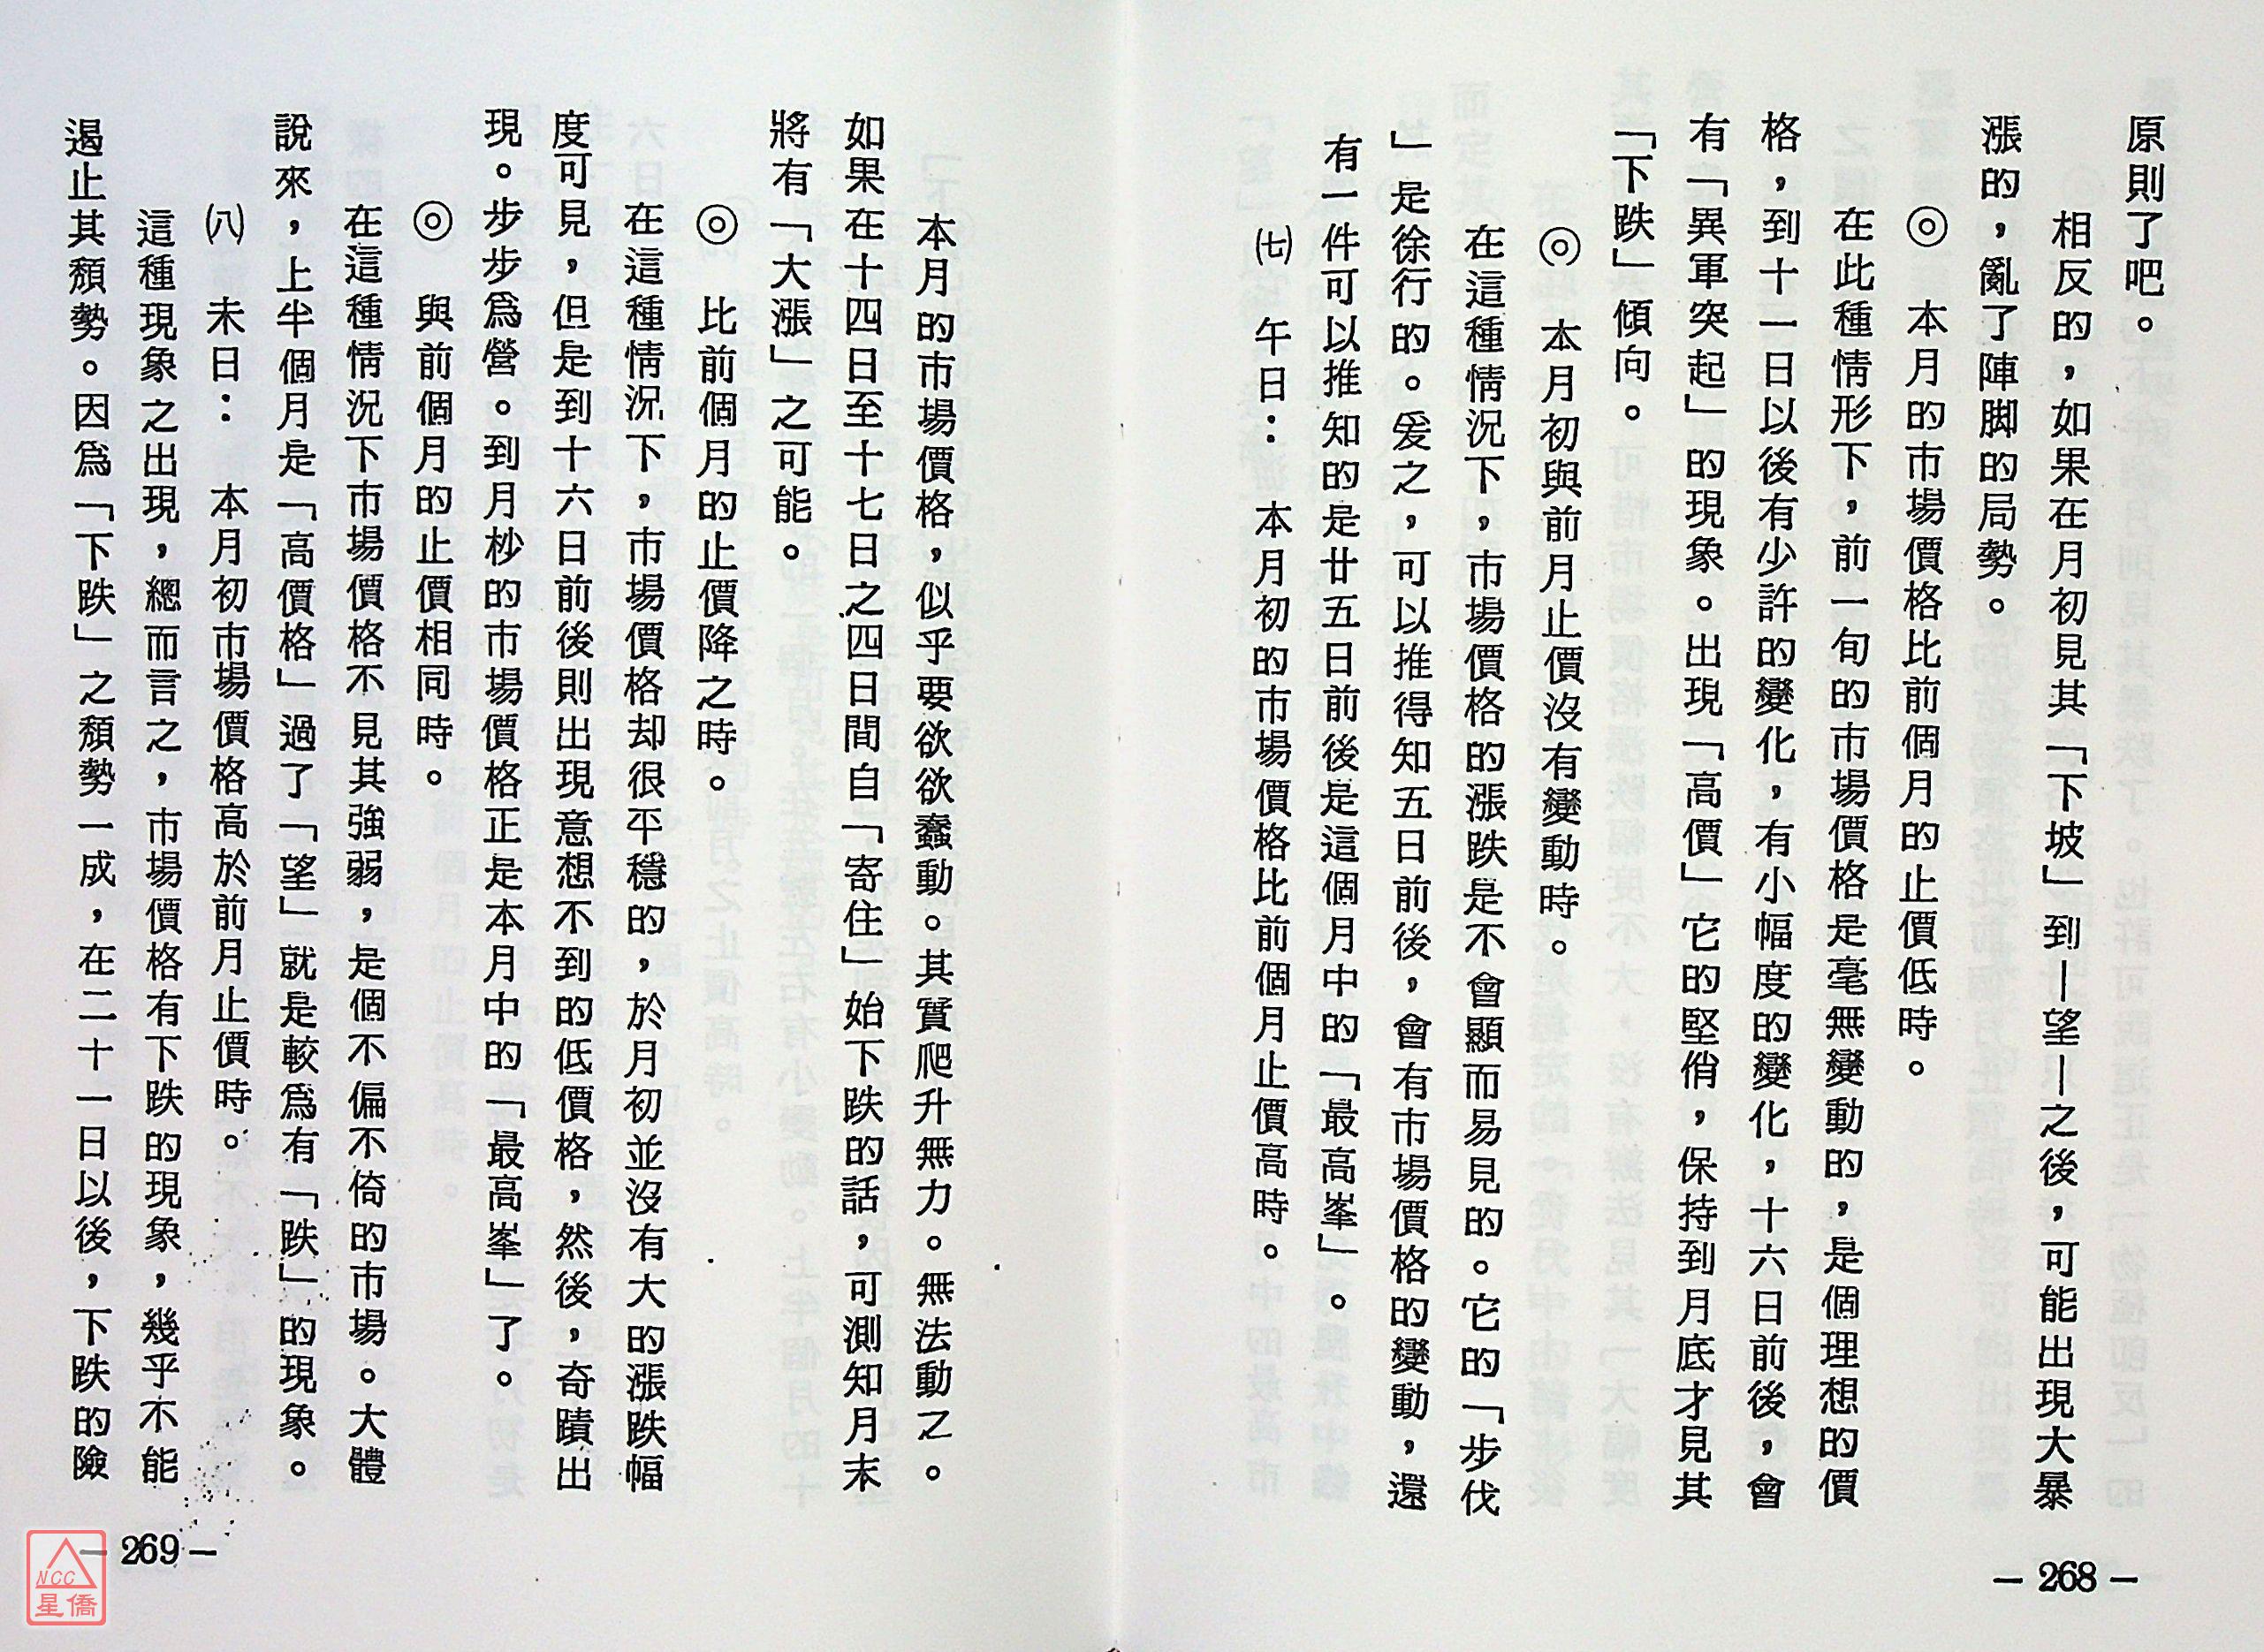 原則了吧。
相反的，如果在月初見其「下坡」到—望—之後，可能出現大暴
漲的，亂了陣脚的局勢。
◎　本月的市場價格比前個月的止價低時。
在此種情形下，前一旬的市場價格是毫無變動的，是個理想的價
格，到十一日以後有少許的變化，有小幅度的變化，十六日前後，會
有「異軍突起」的現象。出現「高價」它的堅俏，保持到月底才見其
「下跌」傾向。
◎　本月初與前月止價沒有變動時。
在這種情況下，市場價格的漲跌是不會顯而易見的。它的「步伐
」是徐行的。爰之，可以推得知五日前後，會有市場價格的變動，還
有一件可以推知的是廿五日前後是這個月中的「最高峯」。
㈦　午日：　本月初的市場價格比前個月止價高時。
－268－
本月的市場價格，似乎要欲欲蠢動。其實爬升無力。無法動之。
如果在十四日至十七日之四日間自「寄住」始下跌的話，可測知月末
將有「大漲」之可能。
◎　比前個月的止價降之時。
在這種情況下，市場價格却很平穩的，於月初並沒有大的漲跌幅
度可見，但是到十六日前後則出現意想不到的低價格，然後，奇蹟出
現。步步爲營。到月杪的市場價格正是本月中的「最高峯」了。
◎　與前個月的止價相同時。
在這種情況下市場價格不見其強弱，是個不偏不倚的市場。大體
說來，上半個月是「高價格」過了「望」就是較爲有「跌」的現象。
㈧　未日：　本月初市場價格高於前月止價時。
這種現象之出現，總而言之，市場價格有下跌的現象，幾乎不能
遏止其頹勢。因爲「下跌」之頹勢一成，在二十一日以後，下跌的險
－269－
NCC
星僑